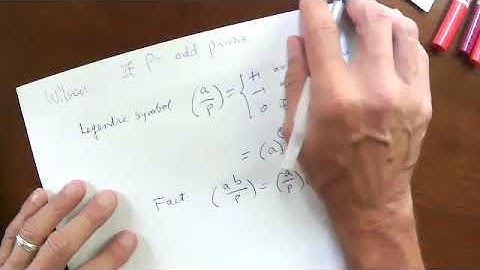 Wilson If p - odd prime
Legendre symbol (a/p) = { +1
-1
0
= (a)
Fact: (ab/p) = (a/p)